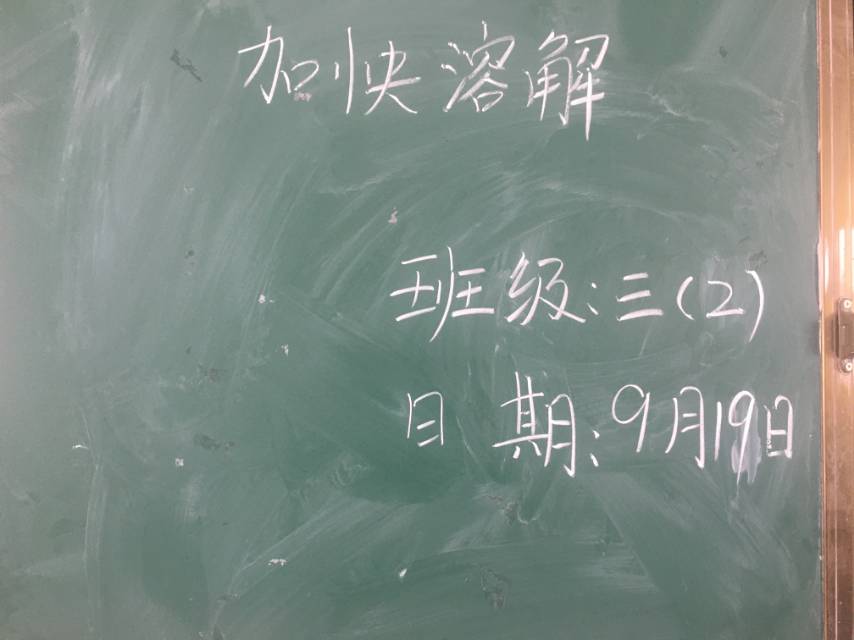 加快溶解
班级:三(2)
日 期:9月19日